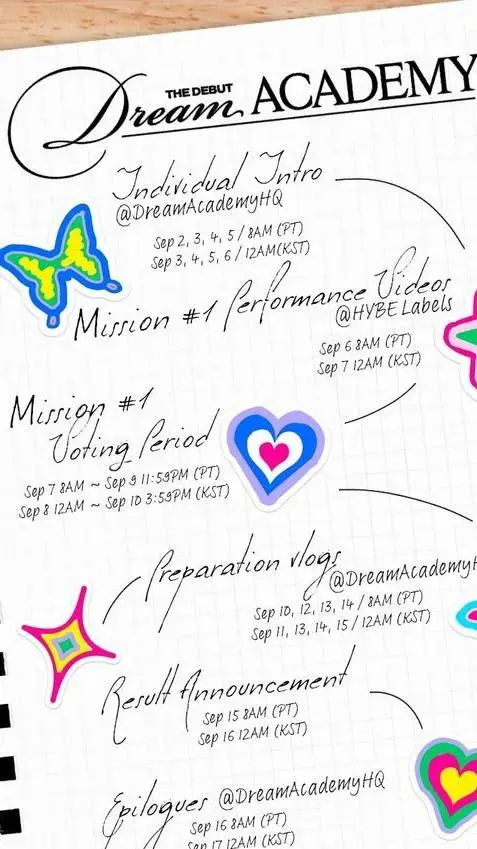 THE DEBUT
Dream ACADEMY
Individual Intro
@DreamAcademyHQ
Sep 2, 3, 4, 5 / 8AM (PT)
Sep 3, 4, 5, 6 / 12AM(KST)
Mission #1 Performance Videos
@HYBE Labels
Sep 6 8AM (PT)
Sep 7 12AM (KST)
Mission #1
Voting Period
Sep 7 8AM ~ Sep 9 11:59PM (PT)
Sep 8 12AM ~ Sep 10 3:59PM (KST)
Preparation vlogs
@DreamAcademyH
Sep 10, 12, 13, 14 / 8AM (PT)
Sep 11, 13, 14, 15 / 12AM (KST)
Result Announcement
Sep 15 8AM (PT)
Sep 16 12AM (KST)
Epilogues @DreamAcademyHQ
Sep 16 8AM (PT)
Sep 17 12AM(KST)